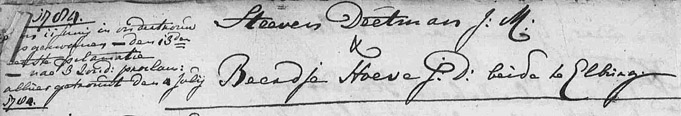 1784.
den 11 Junij in ondertrouw
opgenomen - den 13den
eerste Proclamatie
- na 3 Zond: proclam:
alhier getrouwt den 4 Julij
1784.
Steeven Deetman J. M:
&
Beerdje Hoeve J. D: beide te Elburg.